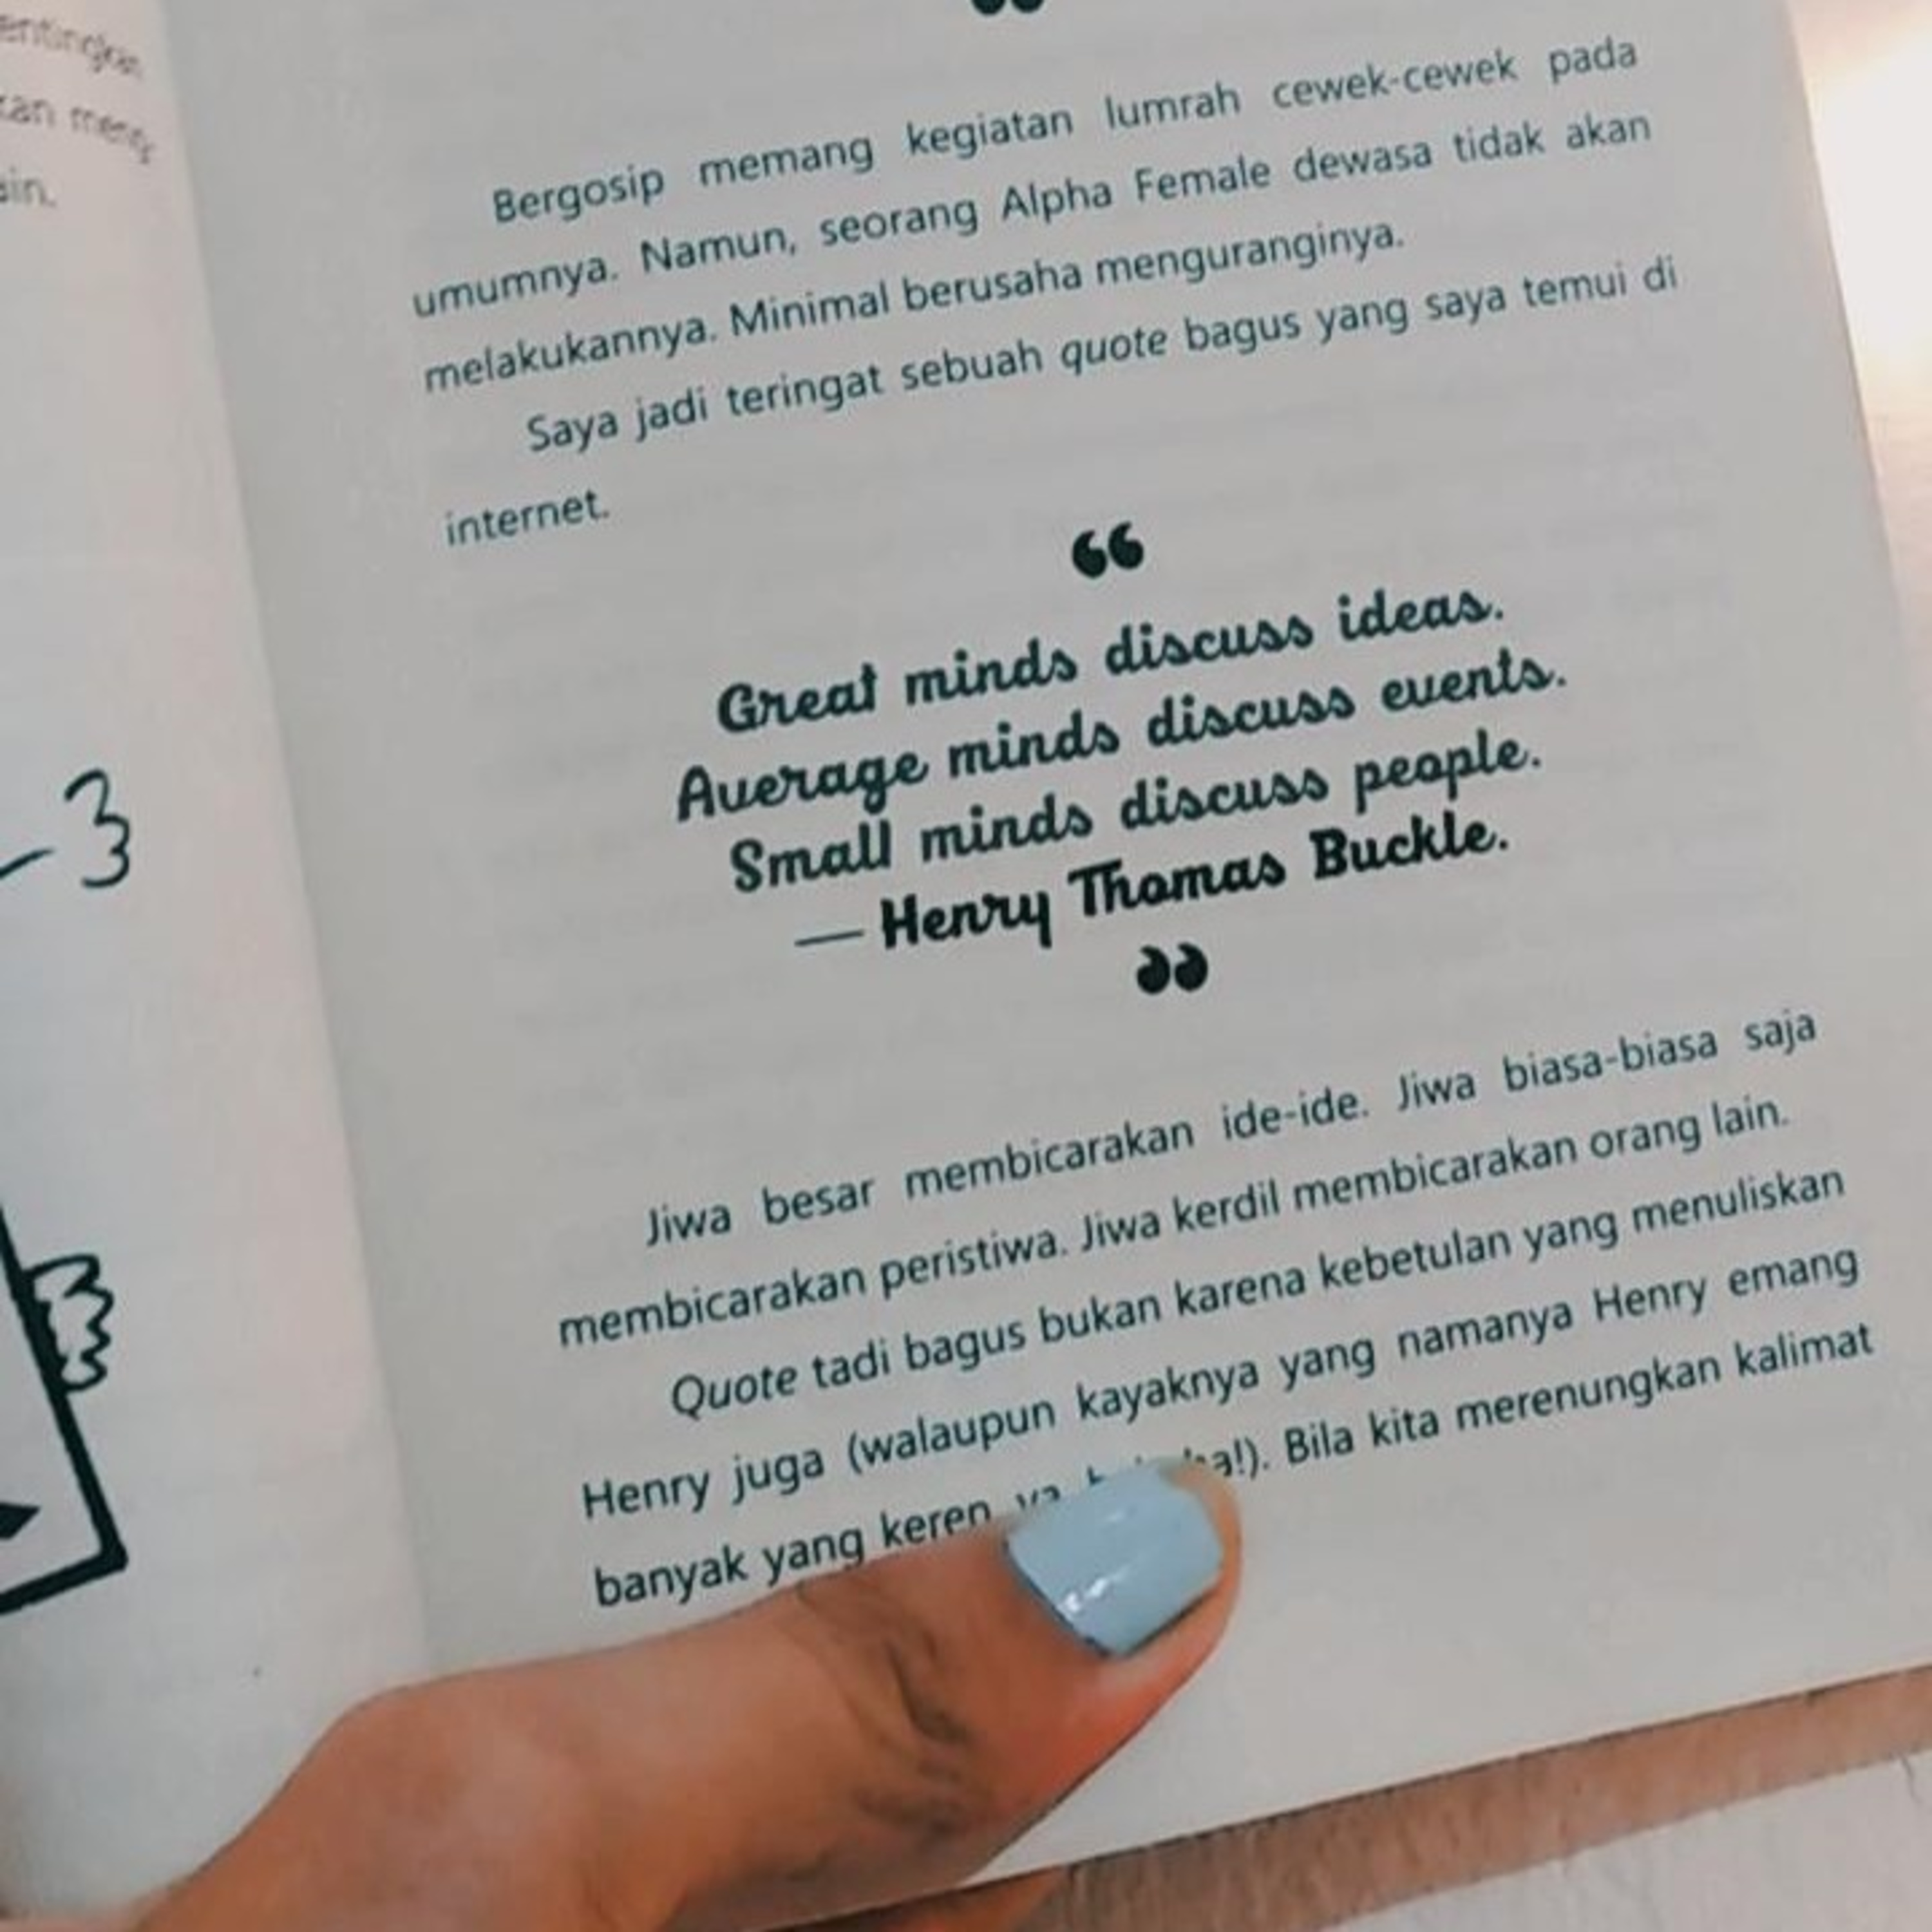 entingkan
kan meng
ain.
Bergosip memang kegiatan lumrah cewek-cewek pada
umumnya. Namun, seorang Alpha Female dewasa tidak akan
melakukannya. Minimal berusaha menguranginya.
Saya jadi teringat sebuah quote bagus yang saya temui di
internet.
“
Great minds discuss ideas.
Average minds discuss events.
Small minds discuss people.
— Henry Thomas Buckle.
”
Jiwa besar membicarakan ide-ide. Jiwa biasa-biasa saja
membicarakan peristiwa. Jiwa kerdil membicarakan orang lain.
Quote tadi bagus bukan karena kebetulan yang menuliskan
Henry juga (walaupun kayaknya yang namanya Henry emang
banyak yang keren ya !). Bila kita merenungkan kalimat